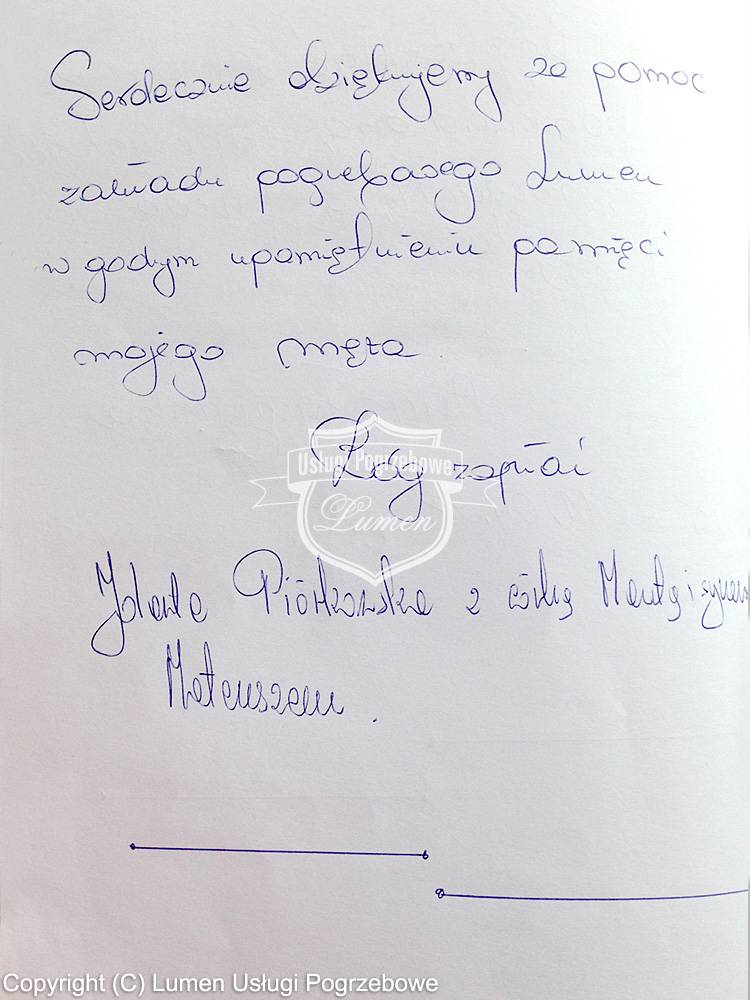 Serdecznie dziękujemy za pomoc
zakładu pogrzebowego Lumen
w godym upamiętnieniu pamięci
mojego męża.
Bóg zapłać
Usługi Pogrzebowe
Lumen
Jolanta Piórkowska z córką Martą i synem
Mateuszem.
Copyright (C) Lumen Usługi Pogrzebowe